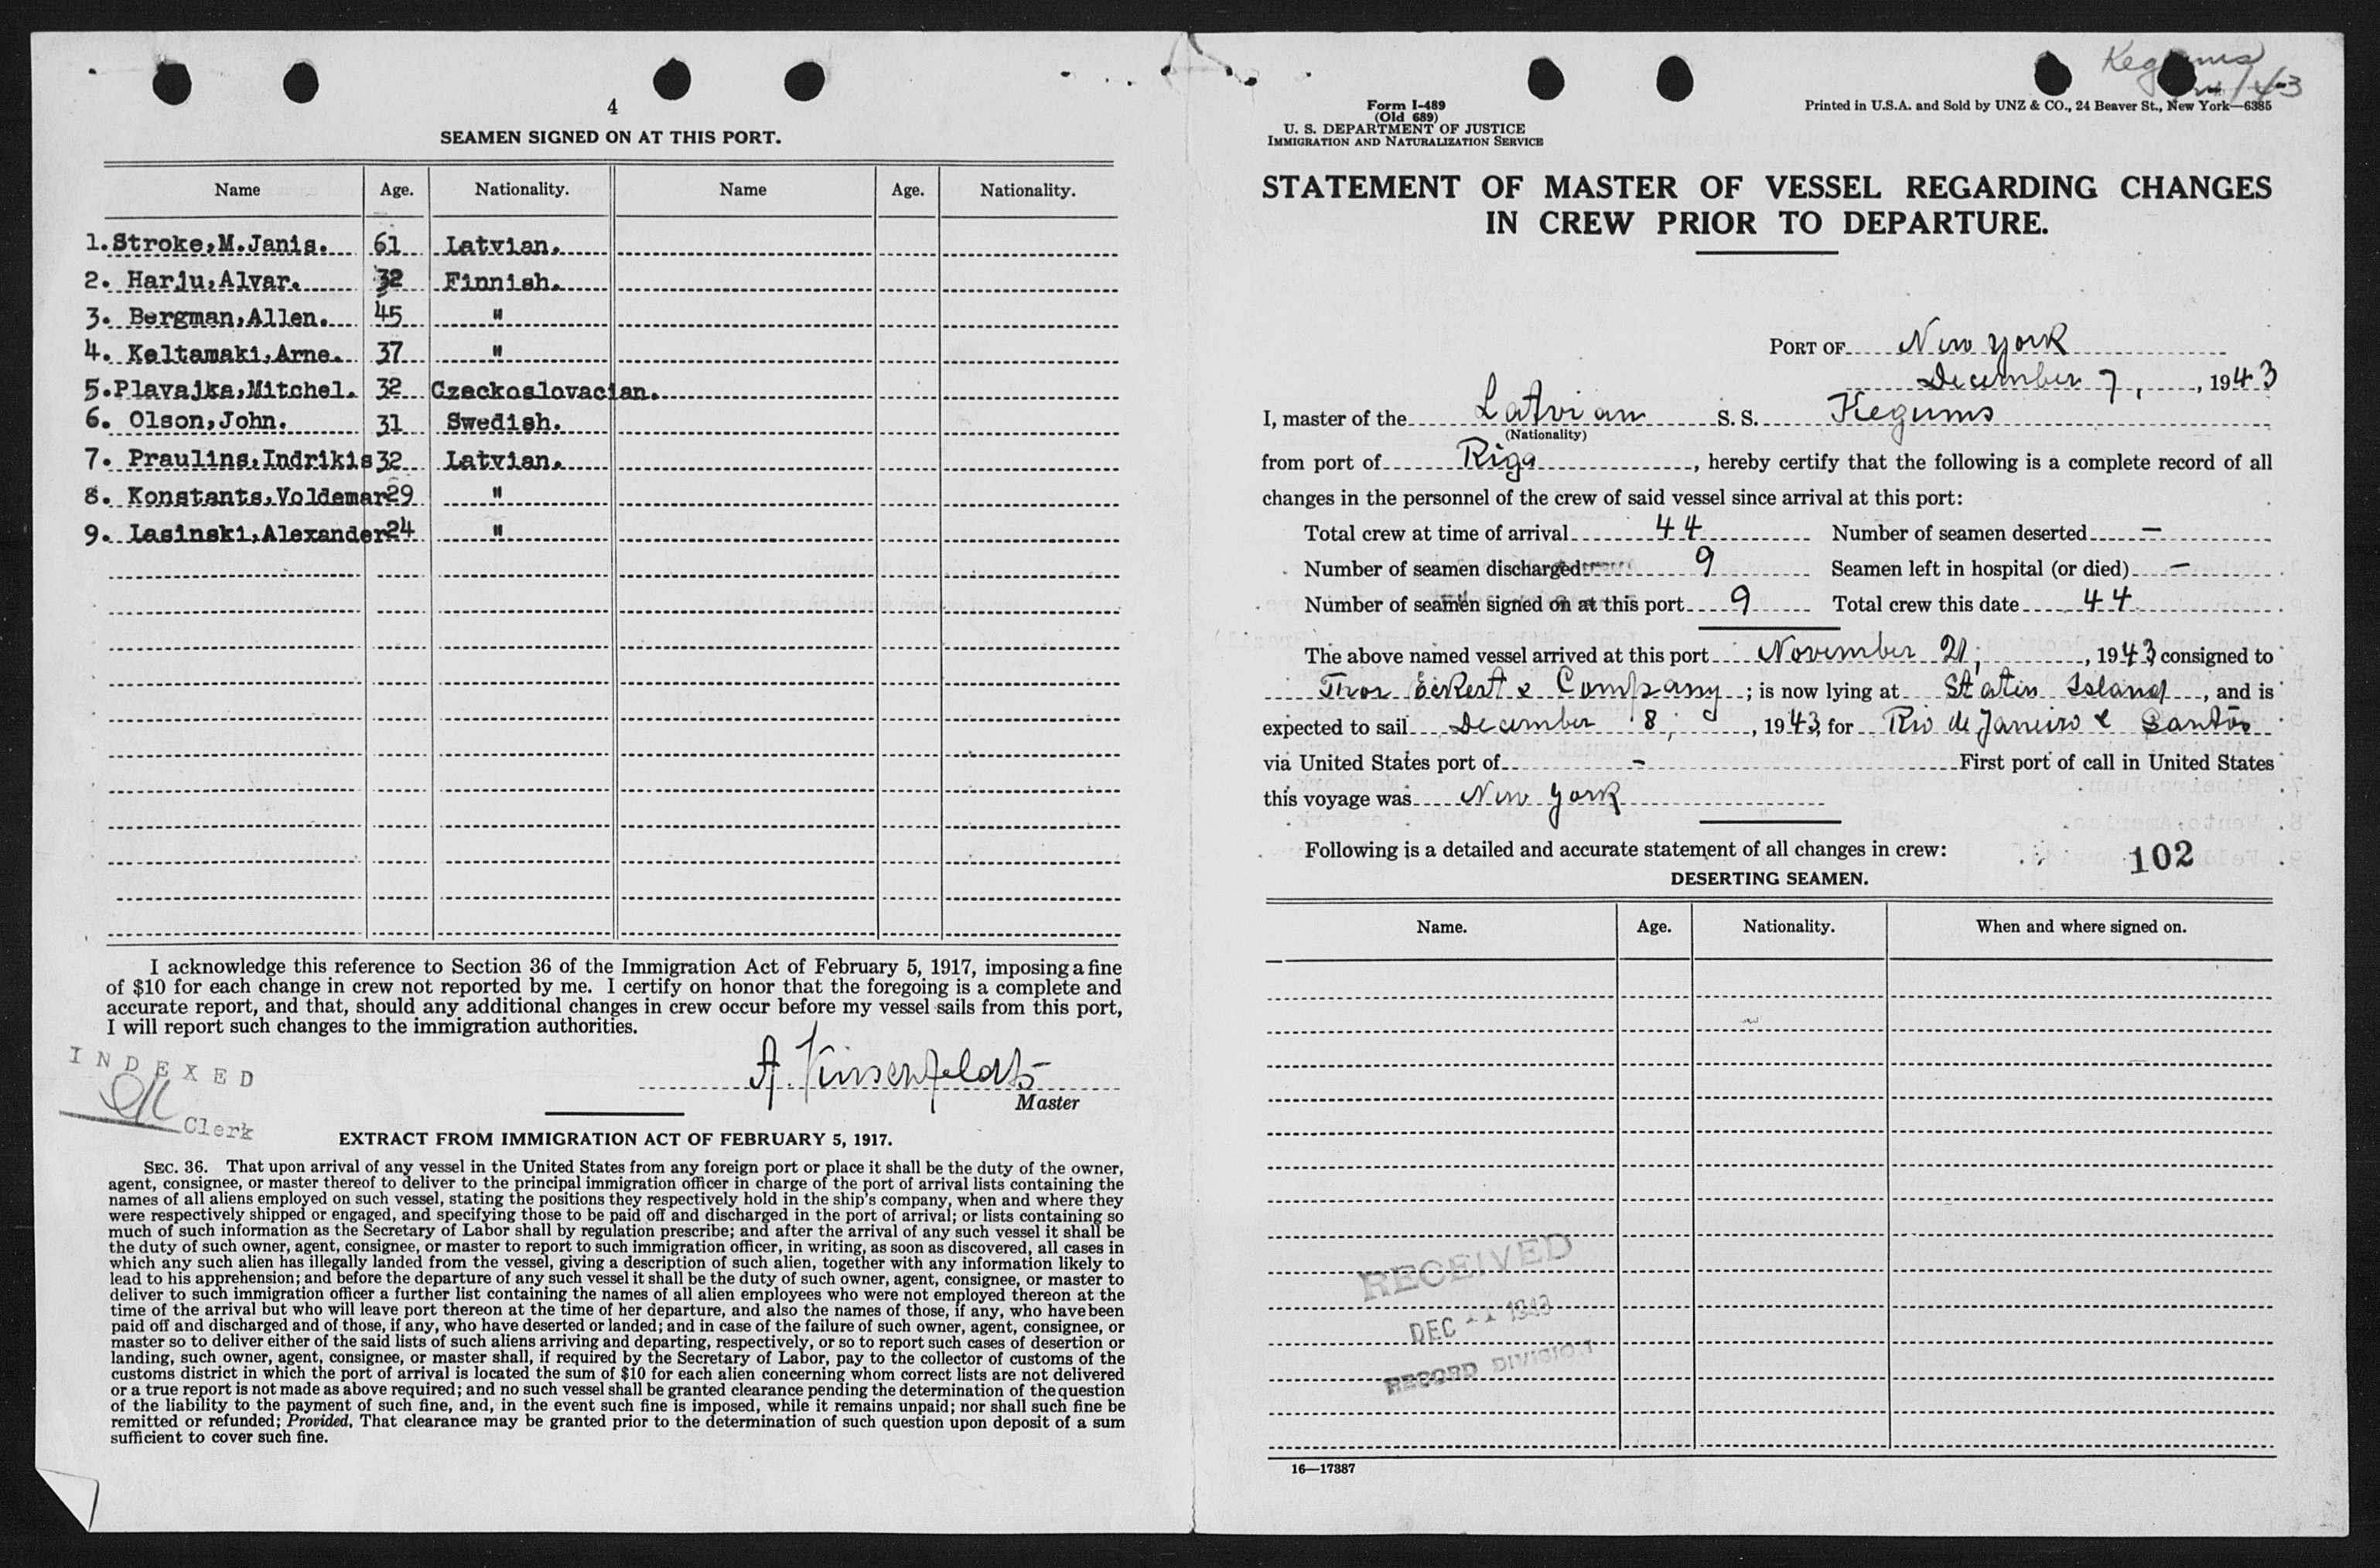 4
SEAMEN SIGNED ON AT THIS PORT.
Name Age. Nationality. Name Age. Nationality.
1. Stroke,M.Janis. 61 Latvian.
2. Harju,Alvar. 32 Finnish.
3. Bergman,Allen. 45 "
4. Keltamaki,Arne. 37 "
5.Plavajka,Mitchel. 32 Czeckoslovacian.
6. Olson,John. 31 Swedish.
7. Praulins,Indrikis 32 Latvian.
8. Konstants,Voldemar 29 "
9. Lasinski,Alexander 24 "
I acknowledge this reference to Section 36 of the Immigration Act of February 5, 1917, imposing a fine
of $10 for each change in crew not reported by me. I certify on honor that the foregoing is a complete and
accurate report, and that, should any additional changes in crew occur before my vessel sails from this port,
I will report such changes to the immigration authorities.
INDEXED
Clerk
Master
EXTRACT FROM IMMIGRATION ACT OF FEBRUARY 5, 1917.
SEC. 36. That upon arrival of any vessel in the United States from any foreign port or place it shall be the duty of the owner,
agent, consignee, or master thereof to deliver to the principal immigration officer in charge of the port of arrival lists containing the
names of all aliens employed on such vessel, stating the positions they respectively hold in the ship's company, when and where they
were respectively shipped or engaged, and specifying those to be paid off and discharged in the port of arrival; or lists containing so
much of such information as the Secretary of Labor shall by regulation prescribe; and after the arrival of any such vessel it shall be
the duty of such owner, agent, consignee, or master to report to such immigration officer, in writing, as soon as discovered, all cases in
which any such alien has illegally landed from the vessel, giving a description of such alien, together with any information likely to
lead to his apprehension; and before the departure of any such vessel it shall be the duty of such owner, agent, consignee, or master to
deliver to such immigration officer a further list containing the names of all alien employees who were not employed thereon at the
time of the arrival but who will leave port thereon at the time of her departure, and also the names of those, if any, who have been
paid off and discharged and of those, if any, who have deserted or landed; and in case of the failure of such owner, agent, consignee, or
master so to deliver either of the said lists of such aliens arriving and departing, respectively, or so to report such cases of desertion or
landing, such owner, agent, consignee, or master shall, if required by the Secretary of Labor, pay to the collector of customs of the
customs district in which the port of arrival is located the sum of $10 for each alien concerning whom correct lists are not delivered
or a true report is not made as above required; and no such vessel shall be granted clearance pending the determination of the question
of the liability to the payment of such fine, and, in the event such fine is imposed, while it remains unpaid; nor shall such fine be
remitted or refunded; Provided, That clearance may be granted prior to the determination of such question upon deposit of a sum
sufficient to cover such fine.
Form I-489
(Old 689)
U. S. DEPARTMENT OF JUSTICE
IMMIGRATION AND NATURALIZATION SERVICE
Printed in U.S.A. and Sold by UNZ & CO., 24 Beaver St., New York—6385
STATEMENT OF MASTER OF VESSEL REGARDING CHANGES
IN CREW PRIOR TO DEPARTURE.
PORT OF New York
December 7, , 1943
I, master of the Latvian S. S. Kegums
(Nationality)
from port of Riga , hereby certify that the following is a complete record of all
changes in the personnel of the crew of said vessel since arrival at this port:
Total crew at time of arrival 44 Number of seamen deserted –
Number of seamen discharged 9 Seamen left in hospital (or died) –
Number of seamen signed on at this port 9 Total crew this date 44
The above named vessel arrived at this port November 21, , 1943 consigned to
Thor Eckert & Company ; is now lying at Staten Island , and is
expected to sail December 8, , 1943, for Rio de Janeiro & Santos
via United States port of - First port of call in United States
this voyage was New York
Following is a detailed and accurate statement of all changes in crew:
102
DESERTING SEAMEN.
Name. Age. Nationality. When and where signed on.
RECEIVED
DEC 1943
RECORD DIVISION
16—17387